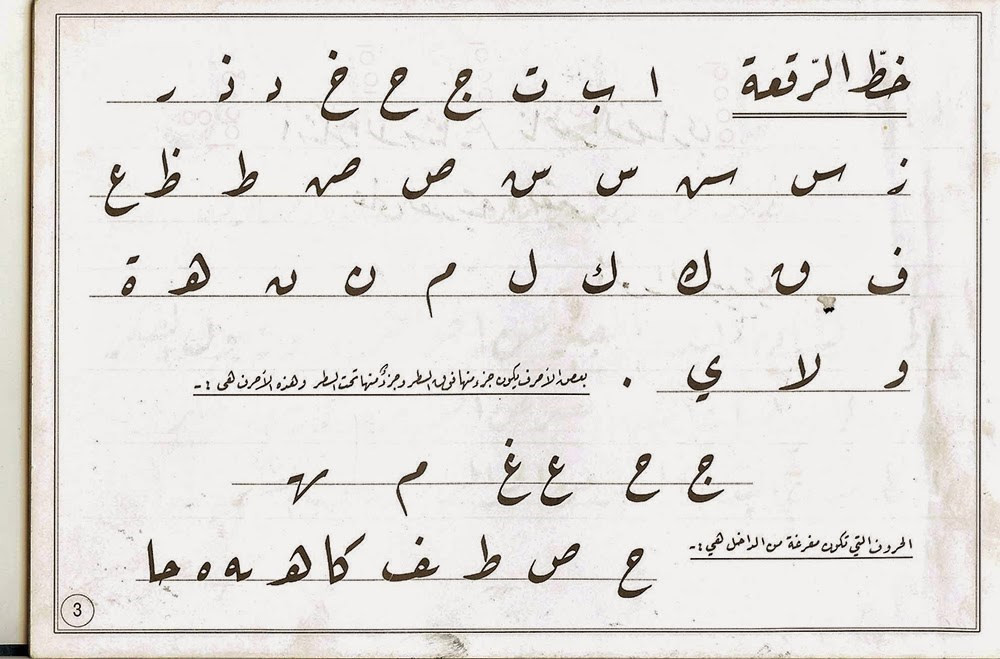 خطّ الرّقعة
ا ب ت ج ح خ د ذ ر
ز س س س س ص ص ط ظ ع
ف ق ك ك ل م ن ن ه ة
و لا ي .
بعض الأحرف يكون جزء منها فوق السطر وجزءٌ منها تحت السطر وهذه الأحرف هي :-
ج ح ع غ م ـهـ
الحروف التي تكون مفرغة من الداخل هي :-
ح ص ط ف كا ه ـه ه حا
3